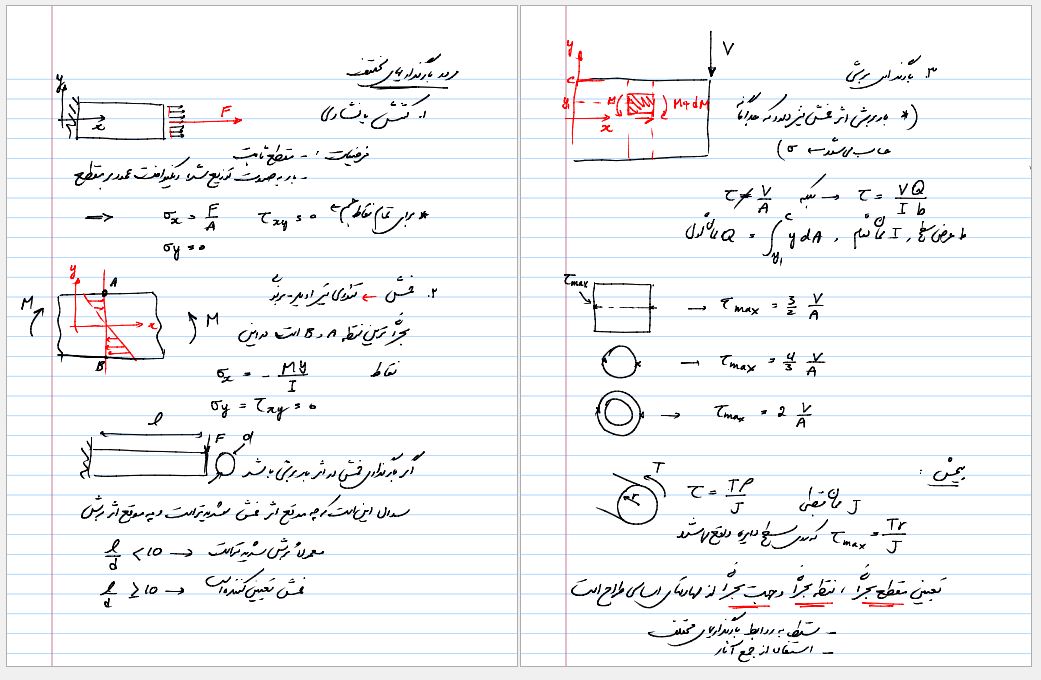 مرور بارگذاریهای مختلف
۱. کشش یا فشاری
y
x
F
فرضیات: - مقطع ثابت
- بار به صورت توزیع شده یکنواخت عمود بر مقطع
⇒ σx = F/A τxy = 0 ← برای تمام نقاط جسم *
σy = 0
۲. خمش ←
y
A
M
x
M
B
بحرانی‌ترین نقطه A و B است در این
نقاط σx = - My/I
σy = τxy = 0
l
F d
اگر بارگذاری خمشی در اثر بار برشی باشد
سوال این است که چه موقع اثر خمش شدیدتر است و چه موقع اثر برش
l/d < 10 → معمولاً برش شدیدتر است
l/d ≥ 10 → خمش تعیین کننده است
۳. بارگذاری برشی
V
y
c
y1
M
M+dM
x
(* بار برشی اثر خمشی نیز دارد که جداگانه
حساب می‌شود ← σ)
τ ≠ V/A بلکه → τ = VQ/Ib
b عرض سطح, I ممان دوم, Q ممان اول = ∫ y dA
c
y1
τmax
→ τmax = 3/2 V/A
→ τmax = 4/3 V/A
→ τmax = 2 V/A
پیچش:
T
r
τ = Tρ/J J ممان قطبی
τmax = Tr/J که روی سطح دایره واقع می‌شود
تعیین مقطع بحرانی، نقطه بحرانی و جهت بحرانی از مهارتهای اساسی طراح است
- تسلط به روابط بارگذاریهای مختلف
- استفاده از جمع آثار